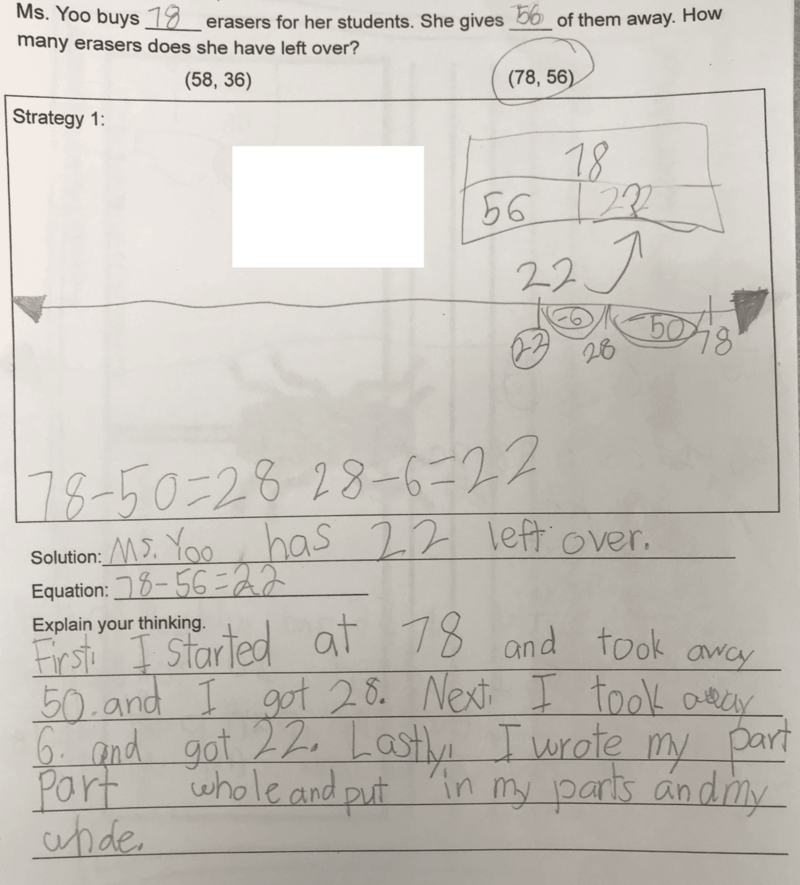 Ms. Yoo buys 78 erasers for her students. She gives 56 of them away. How
many erasers does she have left over?
(58, 36) (78, 56)
Strategy 1:
78
56 22
22
-6 -50
22 28 78
78-50=28 28-6=22
Solution: Ms. Yoo has 22 left over.
Equation: 78-56=22
Explain your thinking.
First, I started at 78 and took away
50. and I got 28. Next, I took away
6. and got 22. Lastly, I wrote my part
Part whole and put in my parts and my
whole.